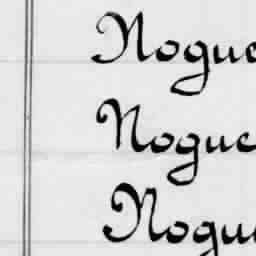 Nogue
Nogue
Nogue